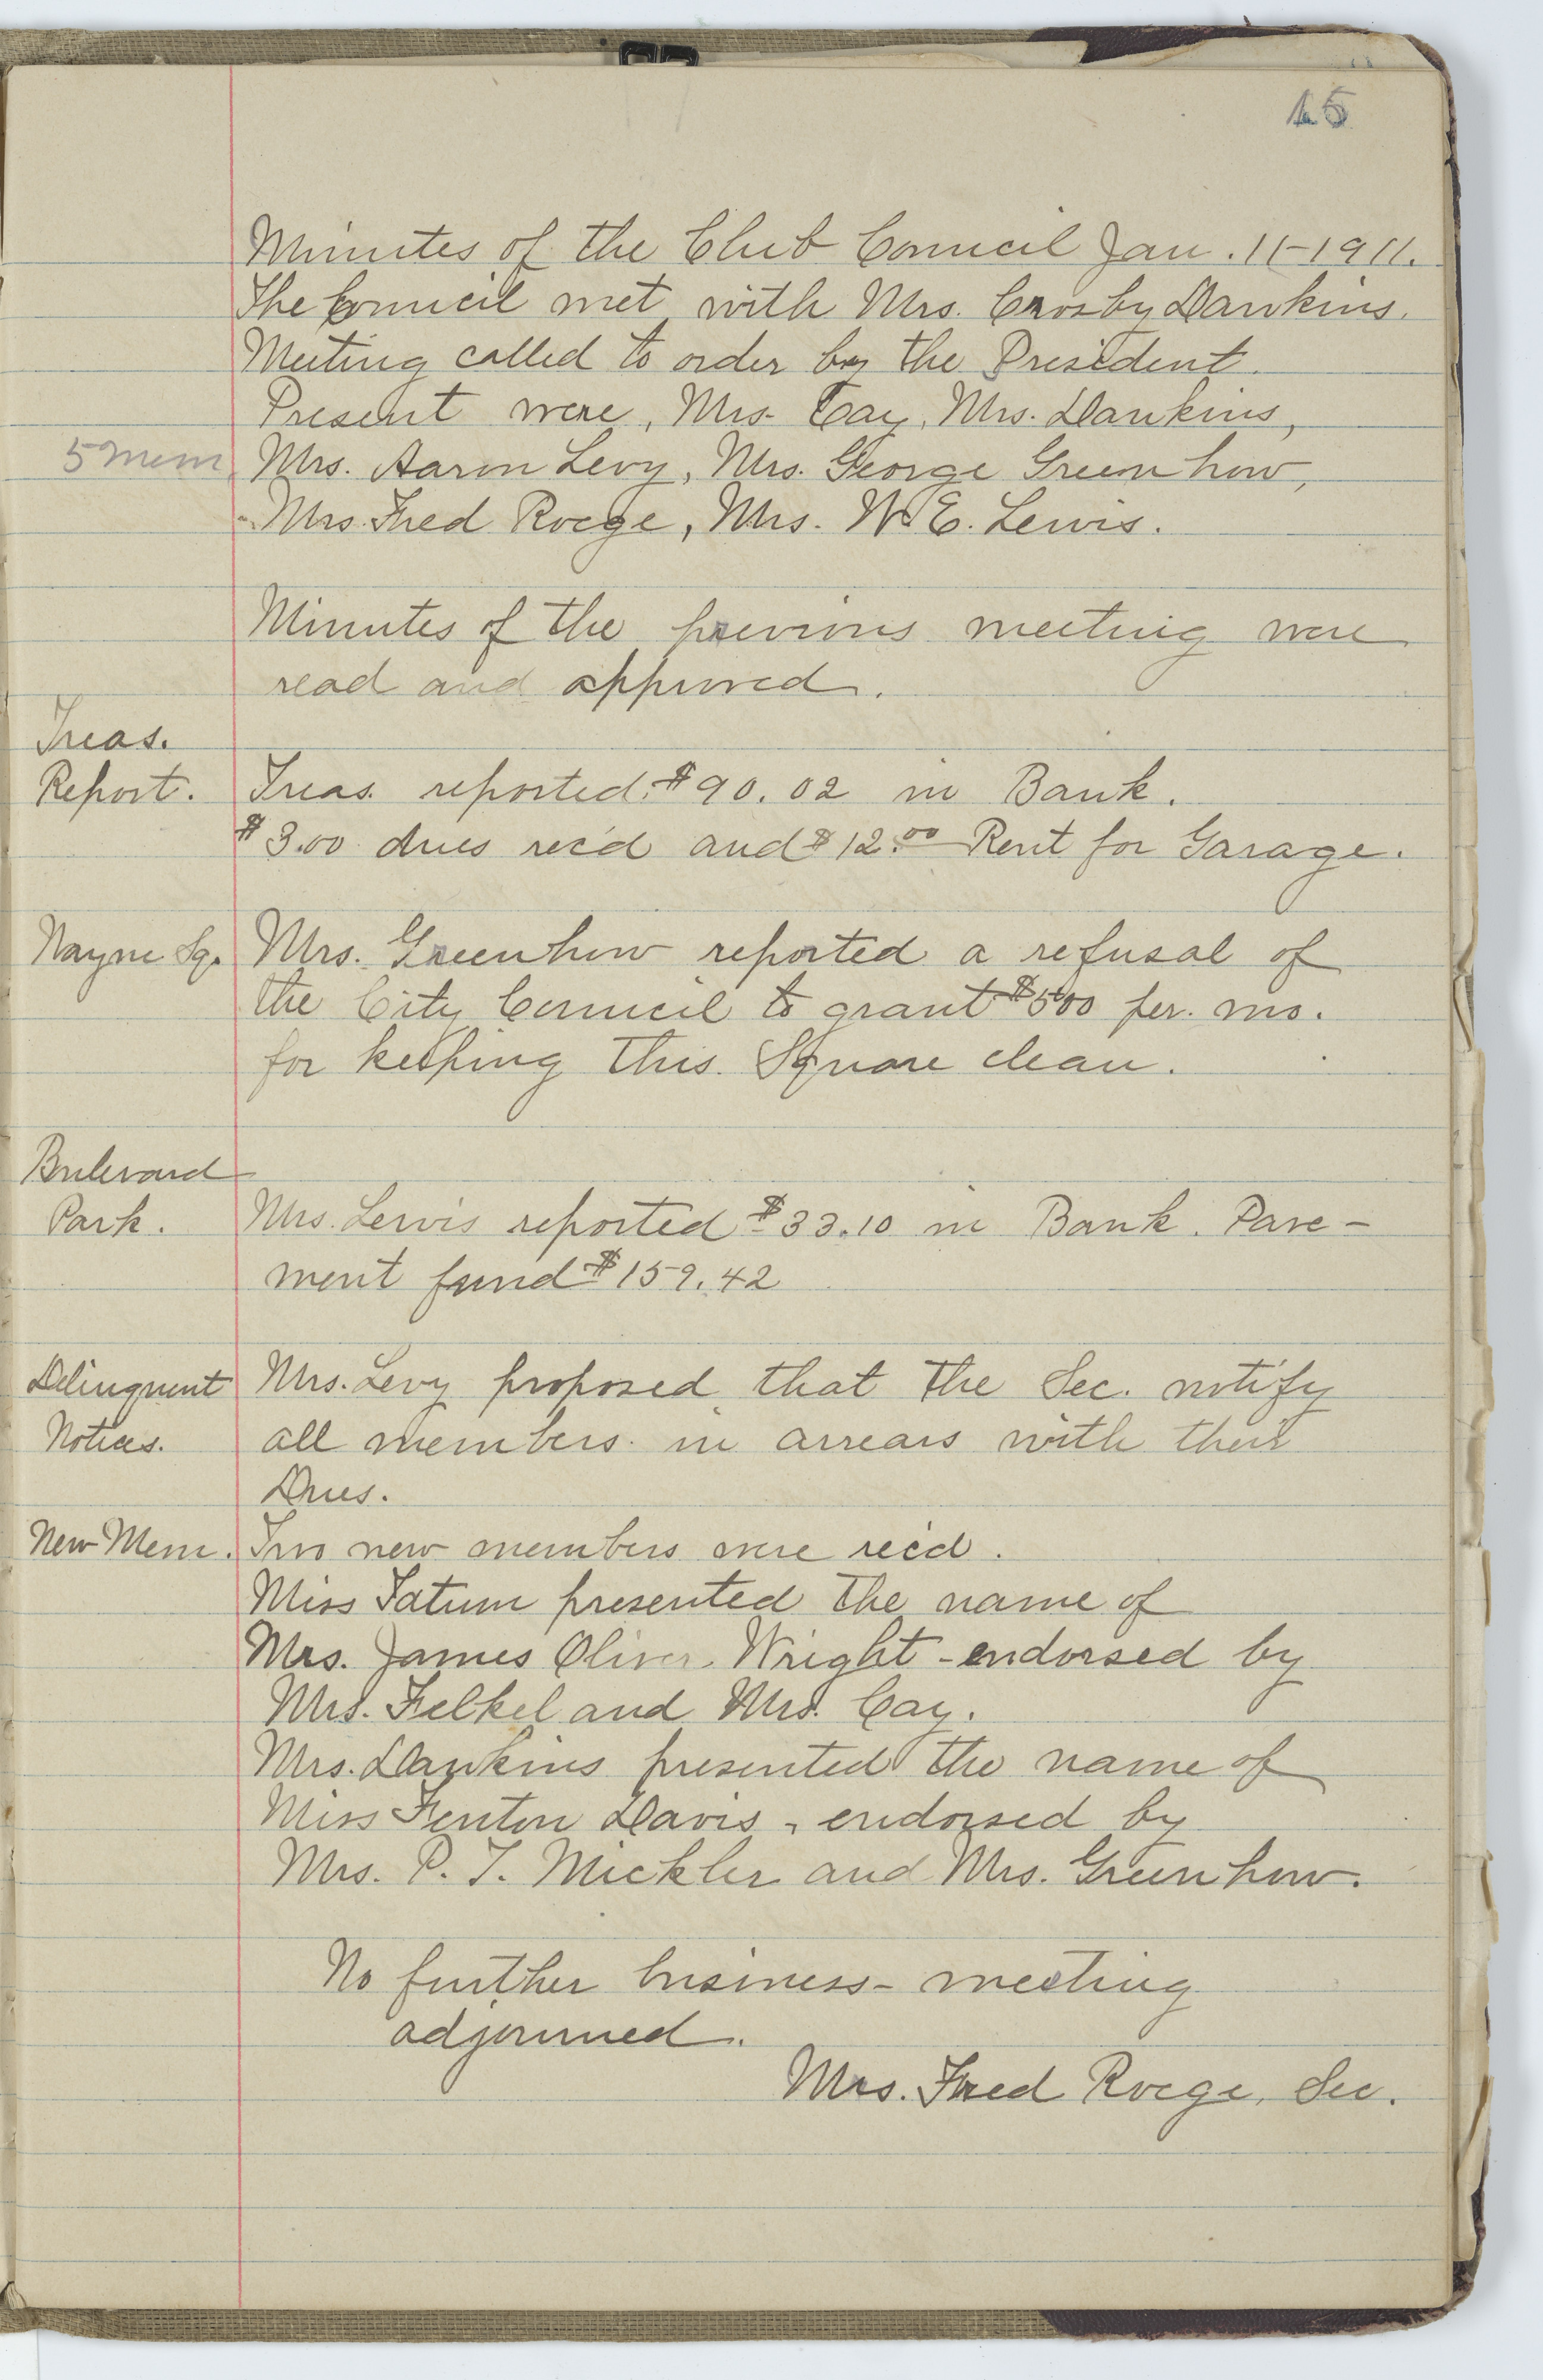 15
Minutes of the Club Council Jan. 11-1911.
The Council met with Mrs. Crosby Dawkins.
Meeting called to order by the President.
Present were, Mrs. Cay, Mrs. Dawkins,
5 mem Mrs. Aaron Levy, Mrs. George Greenhow,
Mrs. Fred Roege, Mrs. W. E. Lewis.
Minutes of the previous meeting were
read and approved.
Treas.
Report. Treas. reported $90.02 in Bank.
$3.00 dues rec'd and $12.00 Rent for Garage.
Wayne Sq. Mrs. Greenhow reported a refusal of
the City Council to grant $500 per. mo.
for keeping this Square clean.
Bulevard
Park. Mrs. Lewis reported $33.10 in Bank. Pave-
ment fund $159.42
Delinquent Mrs. Levy proposed that the Sec. notify
Notices. all members in arrears with their
Dues.
New Mem. Two new members were rec'd.
Miss Tatum presented the name of
Mrs. James Oliver Wright - endorsed by
Mrs. Felkel and Mrs. Cay.
Mrs. Dawkins presented the name of
Miss Fenton Davis - endorsed by
Mrs. P. T. Mickler and Mrs. Greenhow.
No further business - meeting
adjourned.
Mrs. Fred Roege, Sec.